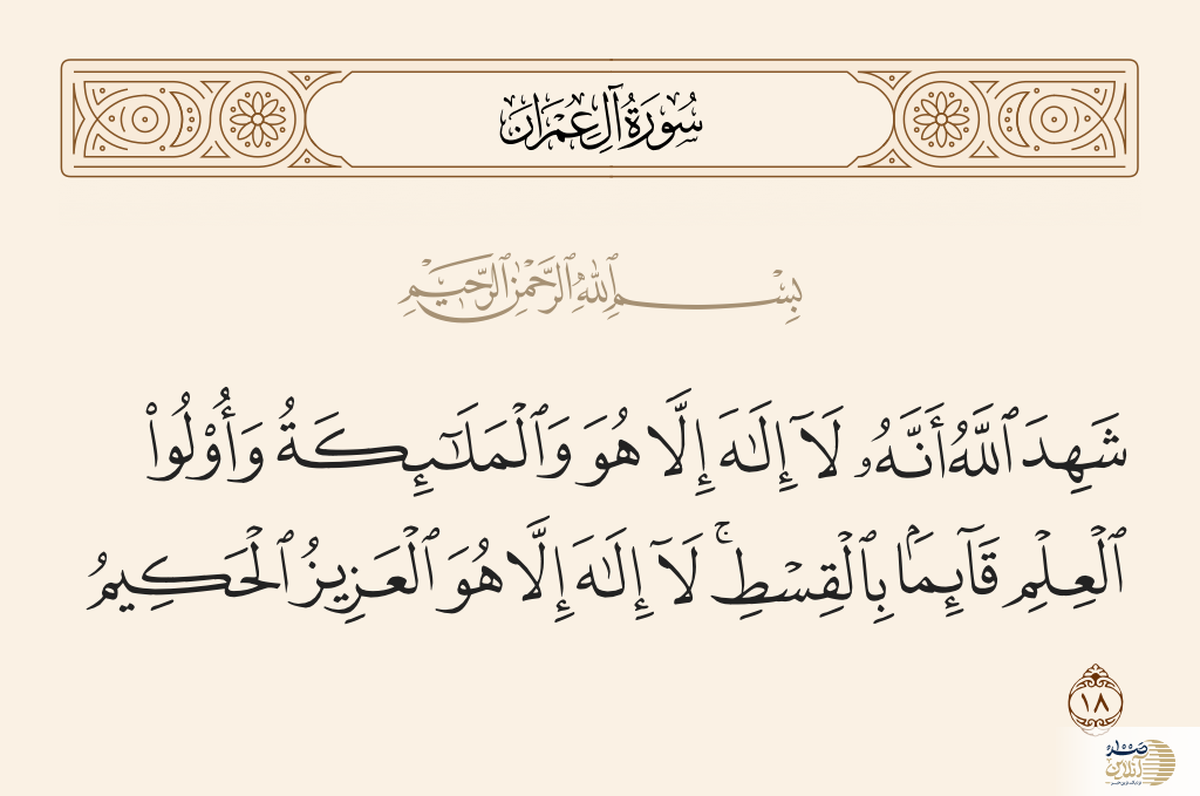 سُورَةُ آلِ عِمْرَانَ
بِسْمِ ٱللَّهِ ٱلرَّحْمَٰنِ ٱلرَّحِيمِ
شَهِدَ ٱللَّهُ أَنَّهُۥ لَآ إِلَٰهَ إِلَّا هُوَ وَٱلْمَلَٰٓئِكَةُ وَأُو۟لُوا۟
ٱلْعِلْمِ قَآئِمًۢا بِٱلْقِسْطِ ۚ لَآ إِلَٰهَ إِلَّا هُوَ ٱلْعَزِيزُ ٱلْحَكِيمُ
١٨
صدر
آنلاین